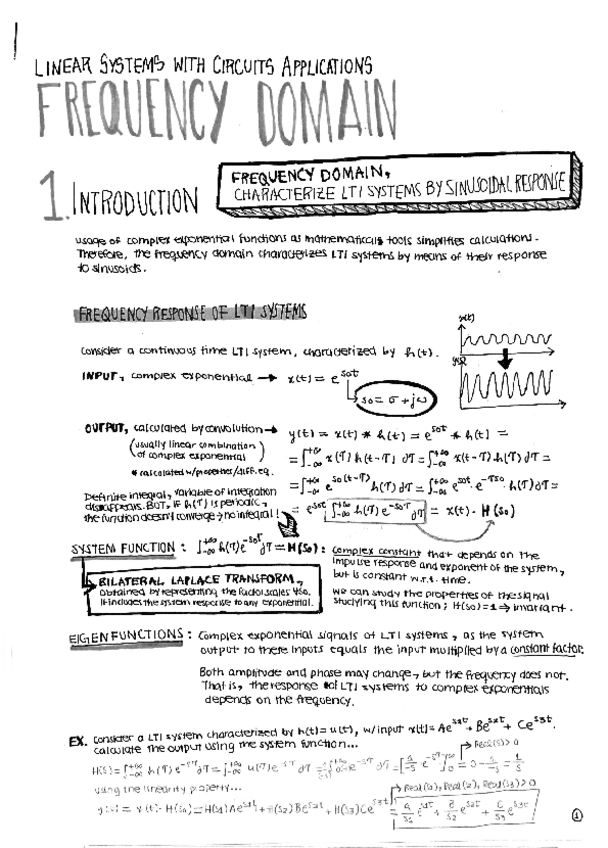 LINEAR SYSTEMS WITH CIRCUITS APPLICATIONS
FREQUENCY DOMAIN
1. INTRODUCTION
FREQUENCY DOMAIN,
CHARACTERIZE LTI SYSTEMS BY SINUSOIDAL RESPONSE
usage of complex exponential functions as mathematicals tools simplifies calculations.
Therefore, the frequency domain characterizes LTI systems by means of their response
to sinusoids.
FREQUENCY RESPONSE OF LTI SYSTEMS
x(t)
Consider a continuous time LTI system, characterized by h(t).
y(t)
INPUT, complex exponential → x(t) = e^{s0t}
s0 = σ + jω
OUTPUT, calculated by convolution → y(t) = x(t) * h(t) = e^{s0t} * h(t) =
(usually linear combination
of complex exponential)
= ∫_{-∞}^{+∞} x(τ) h(t-τ) dτ = ∫_{-∞}^{+∞} x(t-τ) h(τ) dτ =
* calculated w/properties/diff. eq.
= ∫_{-∞}^{+∞} e^{s0(t-τ)} h(τ) dτ = ∫_{-∞}^{+∞} e^{s0t} · e^{-τs0} · h(τ) dτ =
Definite integral, variable of integration
disappears. BUT, if h(τ) is periodic,
the function doesn't converge → no integral!
= e^{s0t} ∫_{-∞}^{+∞} h(τ) e^{-s0τ} dτ = x(t) · H(s0)
SYSTEM FUNCTION: ∫_{-∞}^{+∞} h(τ) e^{-s0τ} dτ = H(s0): complex constant that depends on the
impulse response and exponent of the system,
but is constant w.r.t. time.
BILATERAL LAPLACE TRANSFORM,
obtained by representing the factor scales
It includes the system response to any exponential.
We can study the properties of the signal
studying this function; H(s0) = 1 → invariant.
EIGENFUNCTIONS: Complex exponential signals of LTI systems, as the system
output to there inputs equals the input multiplied by a constant factor.
Both amplitude and phase may change, but the frequency does not.
That is, the response of LTI systems to complex exponentials
depends on the frequency.
EX. Consider a LTI system characterized by h(t) = u(t), w/ input x(t) = Ae^{s1t} + Be^{s2t} + Ce^{s3t}.
calculate the output using the system function...
Real(s) > 0
H(s) = ∫_{-∞}^{+∞} h(τ) e^{-sτ} dτ = ∫_{-∞}^{+∞} u(τ) e^{-sτ} dτ = ∫_{0}^{+∞} e^{-sτ} dτ = [1/-s e^{-sτ}]_{0}^{∞} = 0 - 1/-s = 1/s
using the linearity property...
Real(s1), Real(s2), Real(s3) > 0
y(t) = x(t) · H(s0) = H(s1)Ae^{s1t} + H(s2)Be^{s2t} + H(s3)Ce^{s3t} = A/s1 e^{s1t} + B/s2 e^{s2t} + C/s3 e^{s3t}
1